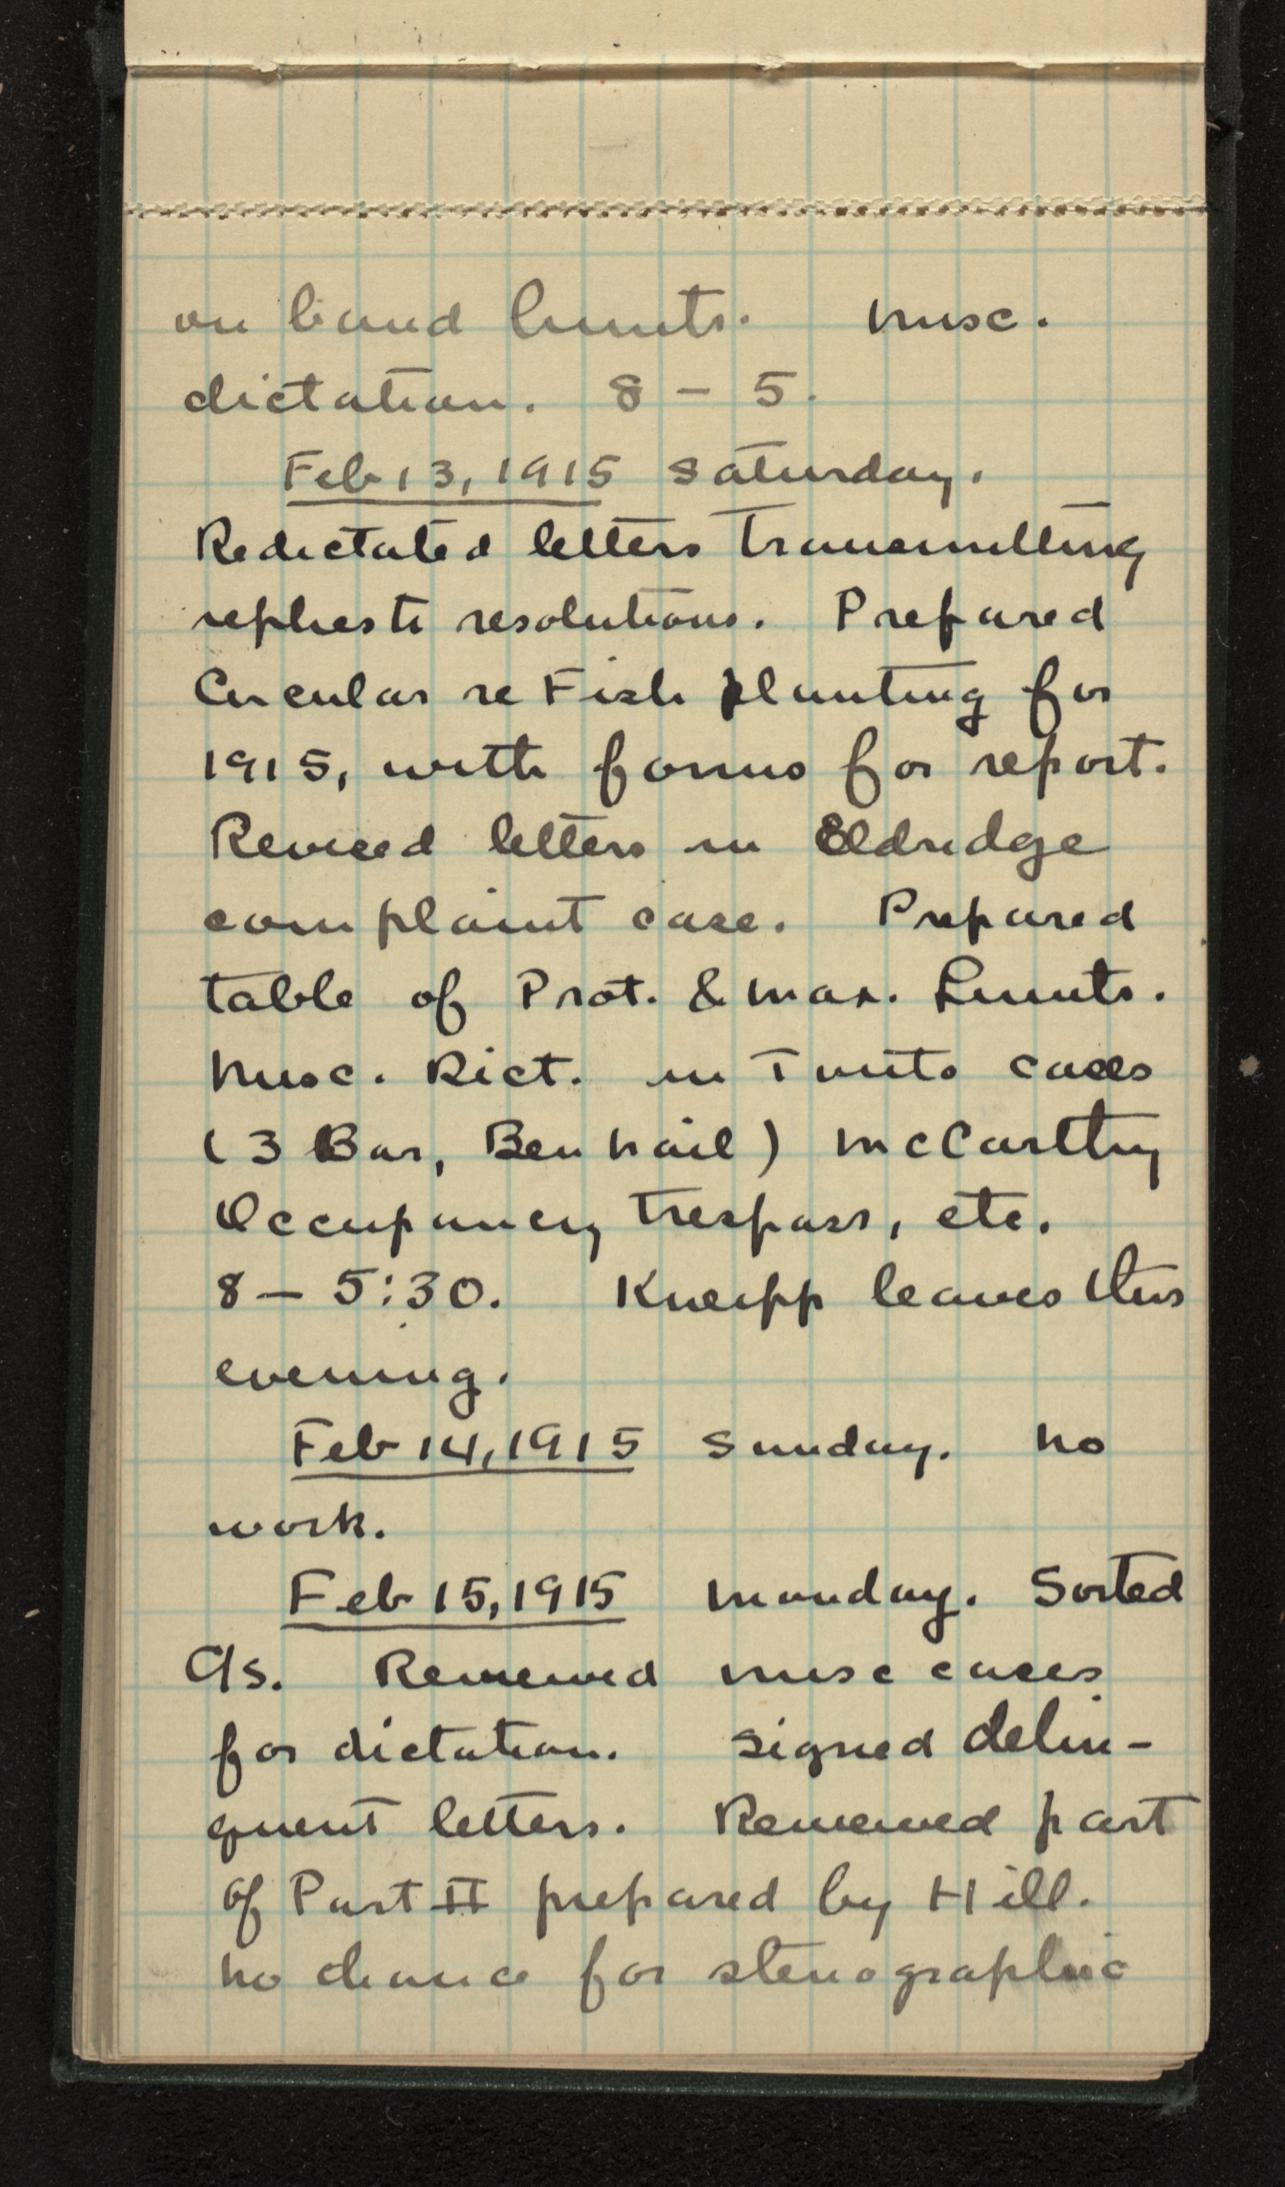 on band limits. Misc.
dictation. 8 - 5.
Feb 13, 1915 Saturday.
Redictated letters transmitting
replies to resolutions. Prepared
Circular re Fish planting for
1915, with forms for report.
Revised letters in Eldridge
complaint case. Prepared
table of Prot. & Max. Limits.
Misc. Dict. in T units cases
(3 Bar, Ben Nail) McCarthy
Occupancy trespass, etc.
8 - 5:30. Kneipp leaves this
evening.
Feb 14, 1915 Sunday. No
work.
Feb 15, 1915 Monday. Sorted
C/s. Reviewed misc cases
for dictation. Signed delin-
quent letters. Reviewed part
of Part II prepared by Hill.
No chance for stenographic